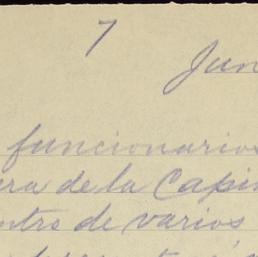 7
Jun
funcionarios
era de la Capi
ntro de varios